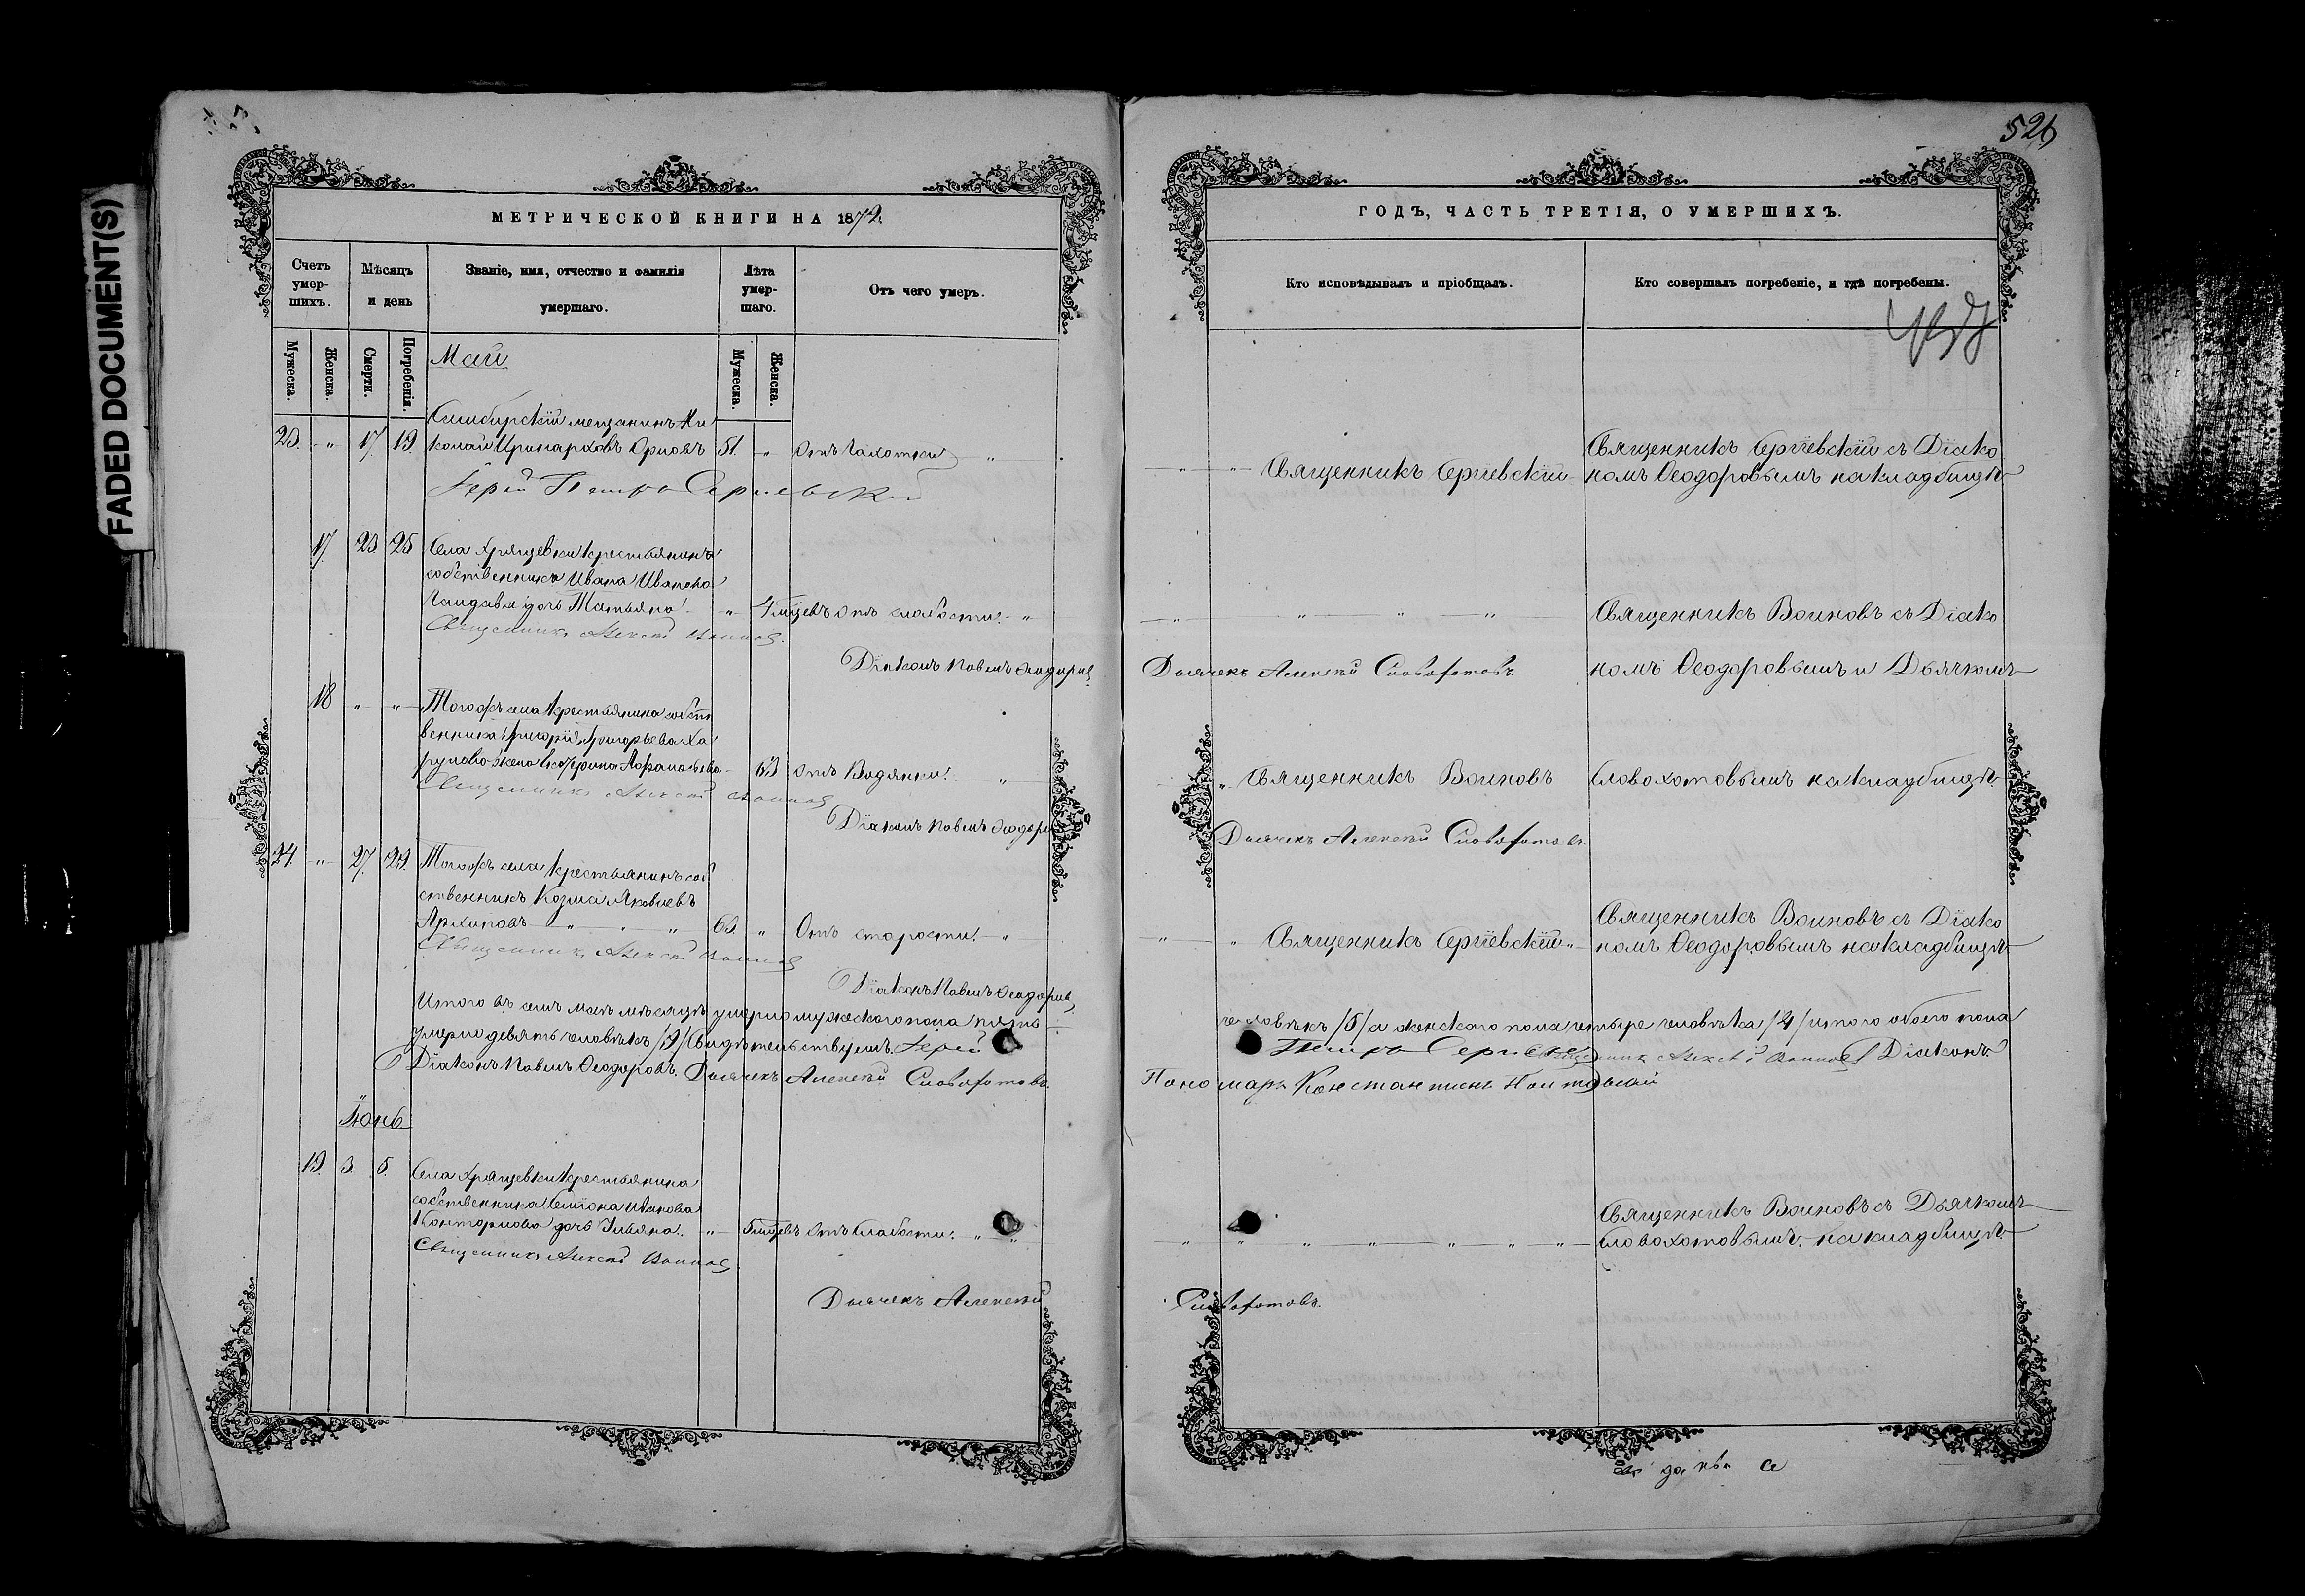 FADED DOCUMENT(S)
МЕТРИЧЕСКОЙ КНИГИ НА 1872.
Счетъ умер-шихъ.
Мѣсяцъ и день
Званіе, имя, отчество и фамилія умершаго.
Лѣта умер-шаго.
Отъ чего умеръ.
Мужеска.
Женска.
Смерти.
Погребенія.
Мужеска.
Женска.
Май
Симбирскій мещанинъ Ни
23. " 17. 19. колай Иринарховъ Орловъ 51. " Отъ Чахотки "
Іерей Петръ Сергіевскій
17. 23 25 Села Хрящевки крестьянина
собственника Ивана Иванова
дочь Татьяна " отъ слабости. "
Священникъ Алексѣй Воиновъ.
Діаконъ Павелъ Ѳеодоровъ
18 " " Тогожъ села крестьянина собст
венника Григорія Григорьева Ха
рунова жена Афанасьева 63 отъ Водянки. "
Священникъ Алексѣй Воиновъ
Діаконъ Павелъ Ѳеодоровъ
24. " 27. 29. Тогожъ села крестьянинъ соб
ственникъ Козма Яковлевъ
Архиповъ " " 63 " Отъ старости. "
Священникъ Алексѣй Воиновъ
Діаконъ Павелъ Ѳеодоровъ
Итого въ семъ маѣ мѣсяцѣ умерло мужескаго пола пять
умерло девять человѣкъ /9/ Свидѣтельствуемъ. Іерей
Діаконъ Павелъ Ѳеодоровъ. Дьячекъ Алексѣй Словохотовъ
Іюнь
19. 3. 5. Села Хрящевки крестьянина
собственника Семіона Иванова
дочь Ульяна. " отъ слабости. " "
Священникъ Алексѣй Воиновъ
Дьячекъ Алексѣй
526
ГОДЪ, ЧАСТЬ ТРЕТІЯ, О УМЕРШИХЪ.
Кто исповѣдывалъ и пріобщалъ.
Кто совершалъ погребеніе, и гдѣ погребены.
Священникъ Сергіевскій съ Діако
" " Священникъ Сергіевскій номъ Ѳеодоровымъ на кладбищѣ
" " " " Священникъ Воиновъ съ Діако
Дьячекъ Алексѣй Словохотовъ. номъ Ѳеодоровымъ и Дьячкомъ
" Священникъ Воиновъ Словохотовымъ на кладбищѣ.
Дьячекъ Алексѣй Словохотовъ.
Священникъ Воиновъ съ Діако
" " Священникъ Сергіевскій " номъ Ѳеодоровымъ на кладбищѣ
человѣкъ /5/ а женскаго пола четыре человѣка /4/ итого обоего пола
Петръ Сергіевскій Священникъ Алексѣй Воиновъ Діаконъ
Пономарь Константинъ
Священникъ Воиновъ съ Дьячкомъ
" " " " " " " Словохотовымъ. на кладбищѣ
Словохотовъ.